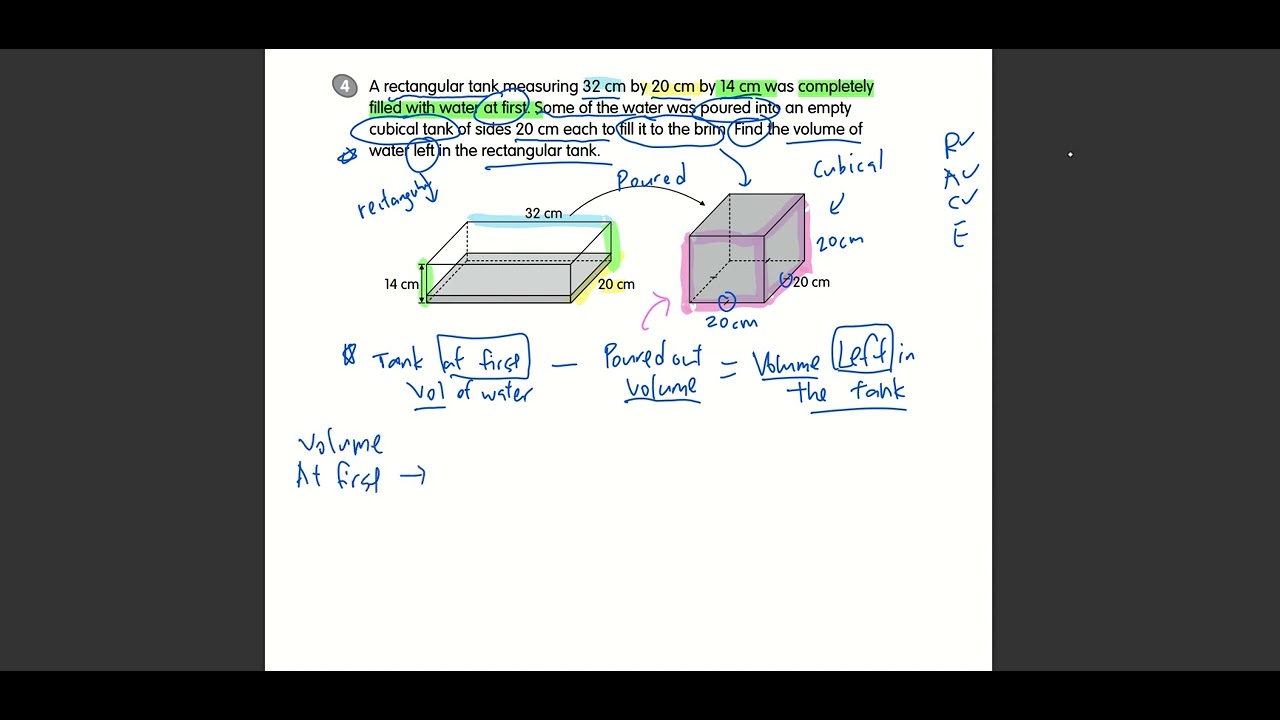 4 A rectangular tank measuring 32 cm by 20 cm by 14 cm was completely
filled with water at first. Some of the water was poured into an empty
cubical tank of sides 20 cm each to fill it to the brim. Find the volume of
water left in the rectangular tank.
R✓
A✓
C✓
E
rectangular
Poured
Cubical
32 cm
20cm
14 cm
20 cm
20 cm
20cm
Tank at first — Poured out = Volume Left in
Vol of water volume the tank
Volume
At first →